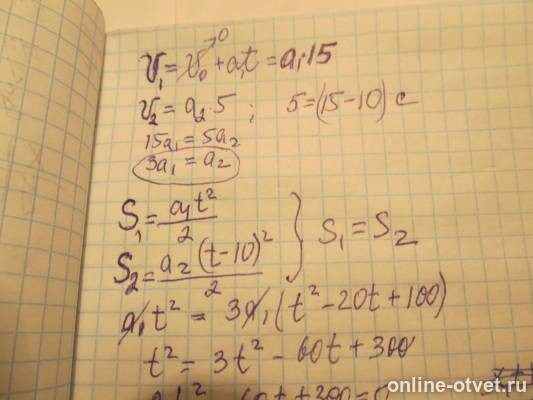 v₁ = v₀→⁰ + a₁t = a₁·15
v₂ = a₂·5 ; 5 = (15 − 10) c
15a₁ = 5a₂
3a₁ = a₂
S₁ = a₁t²/2
S₂ = a₂(t−10)²/2 } S₁ = S₂
a₁t² = 3a₁(t² − 20t + 100)
t² = 3t² − 60t + 300
60t + 300 = 0
online-otvet.ru